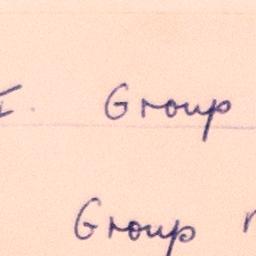 I. Group
Group